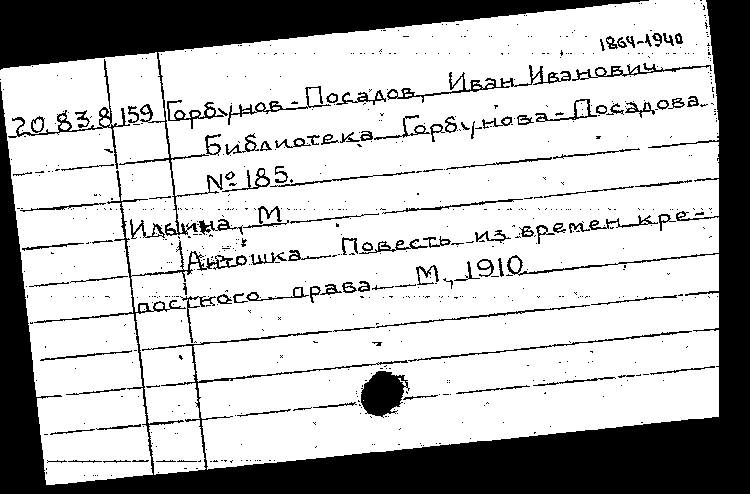 1864-1940
20.83.8.159 Горбунов-Посадов, Иван Иванович.
Библиотека Горбунова-Посадова
№ 185.
Ильина, М.
Антошка. Повесть из времен кре-
постного права. М., 1910